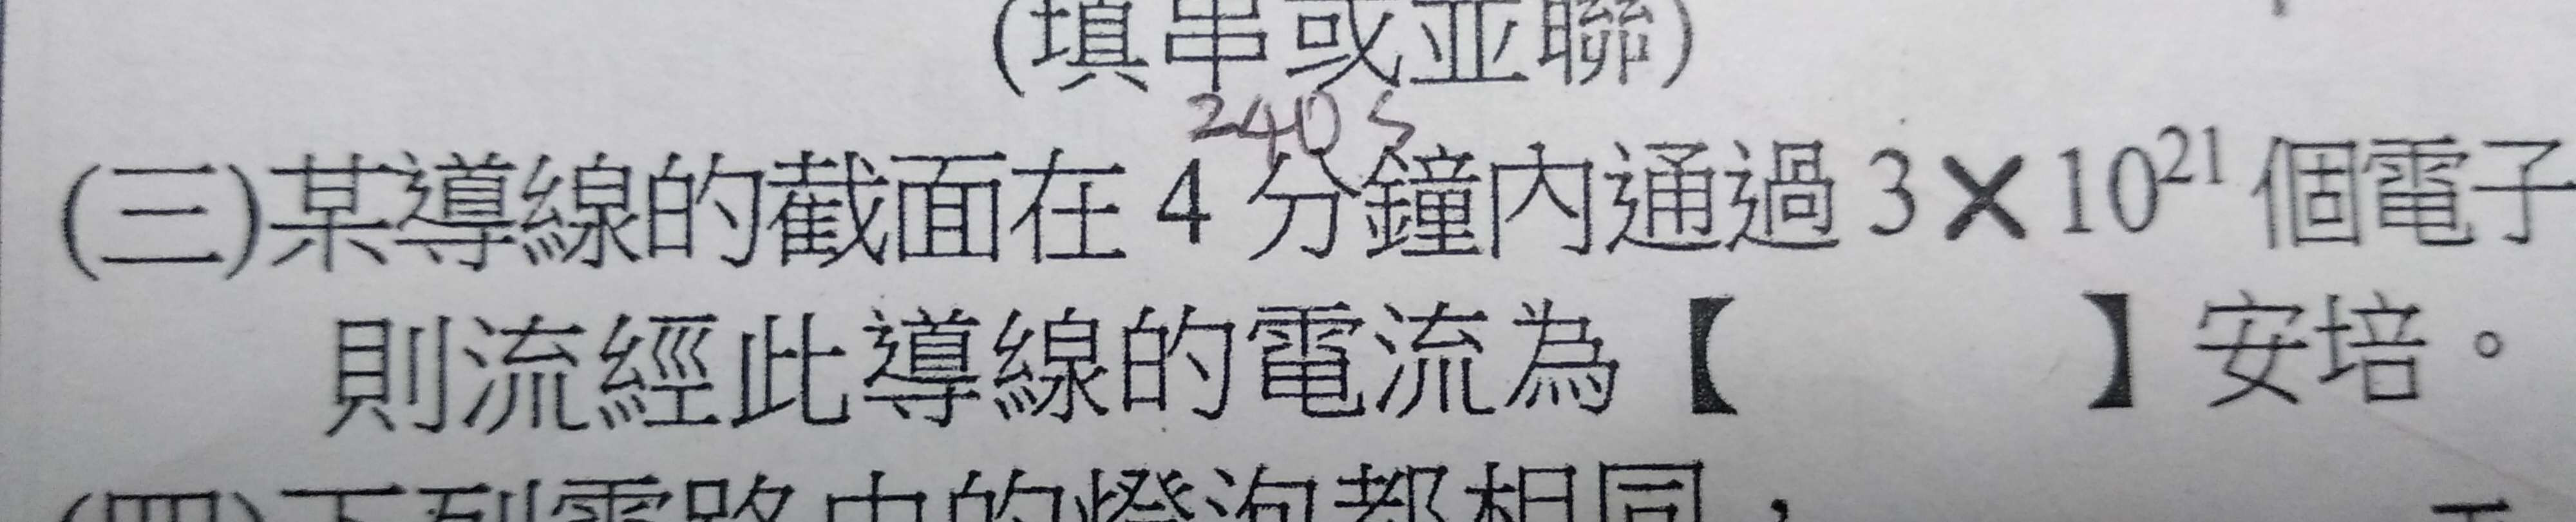 (填串或並聯)
240 s
(三)某導線的截面在 4 分鐘內通過 3×10²¹ 個電子
則流經此導線的電流為【 】安培。
(四)下列電路中的燈泡都相同，